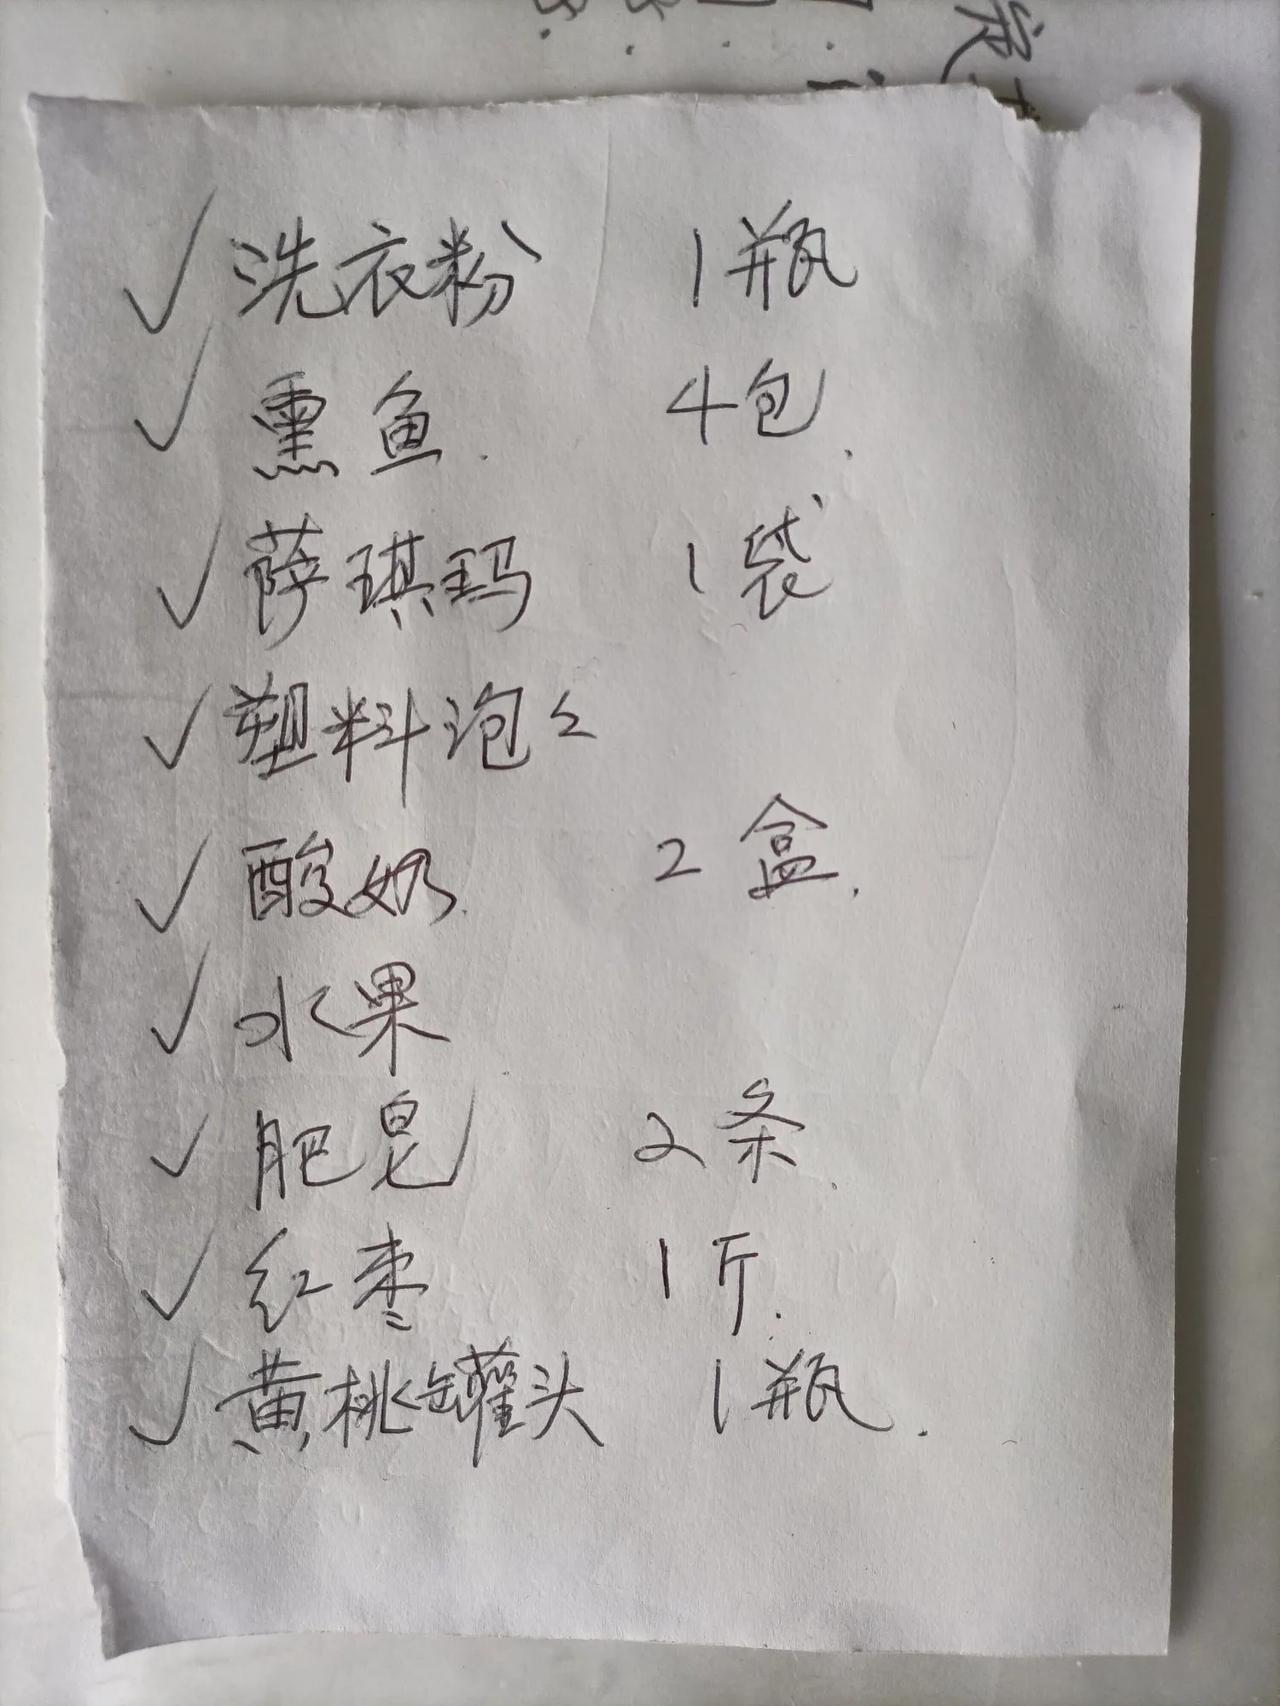 洗衣粉 1瓶
熏鱼. 4包.
萨琪玛 1袋
塑料泡
酸奶. 2盒.
水果
肥皂 2条.
红枣 1斤.
黄桃罐头 1瓶.